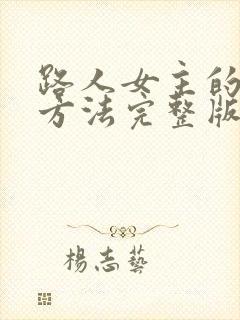 路人女主的
方法完整版
楊志藝